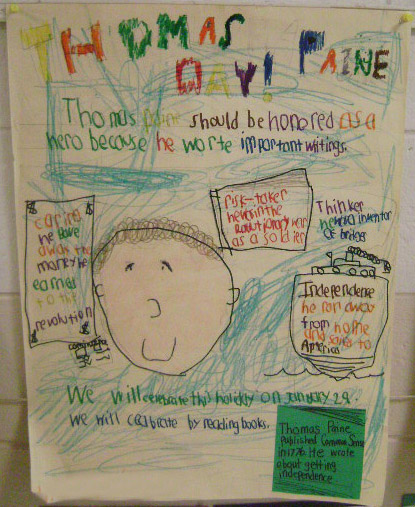 THOMAS PAINE
DAY!
Thomas Paine should be honored as a
hero because he worte important writings.
caring
he gave
away the
money he
earned
to the
revolution
risk-taker
he was in the
Revolutionary war
as a soldier
Thinker
he was a inventor
of bridges
Independence
he ran away
from home
and sailed to
America
We will celebrate this holiday on January 29.
We will celabrate by reading books.
Thomas Paine
published Common Sense
in 1776. He wrote
about getting
independence